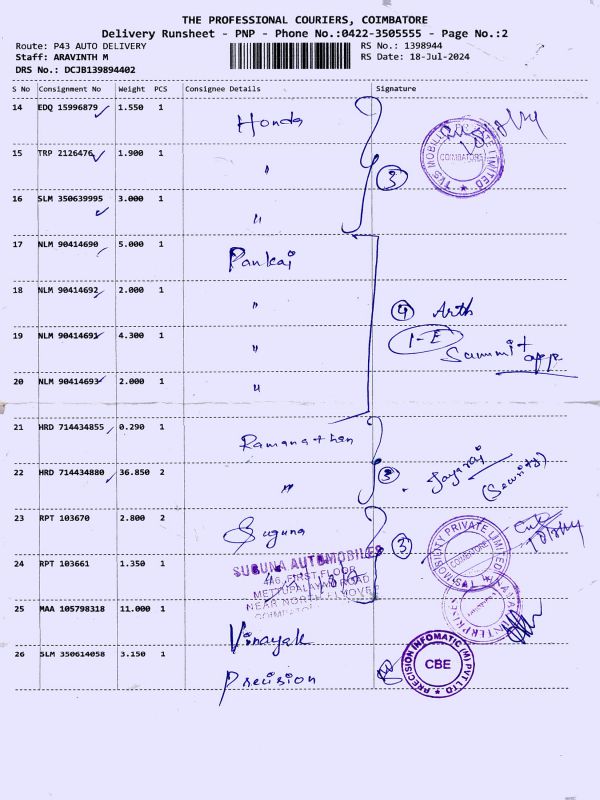 THE PROFESSIONAL COURIERS, COIMBATORE
Delivery Runsheet - PNP - Phone No.:0422-3505555 - Page No.:2
Route: P43 AUTO DELIVERY RS No.: 1398944
Staff: ARAVINTH M RS Date: 18-Jul-2024
DRS No.: DCJB139894402
S No Consignment No Weight PCS Consignee Details Signature
14 EDQ 15996879 1.550 1 Honda
15 TRP 2126476 1.900 1 "
3
16 SLM 350639995 3.000 1 "
17 NLM 90414690 5.000 1 Pankaj
18 NLM 90414692 2.000 1 "
4 Arth
19 NLM 90414691 4.300 1 "
1-E Summit app
20 NLM 90414693 2.000 1 "
21 HRD 714434855 0.290 1 Ramanathan
22 HRD 714434880 36.850 2 " 3 Jayaraj (Security)
23 RPT 103670 2.800 2 Suguna
3
TVS MOBILITY PRIVATE LIMITED
COIMBATORE
24 RPT 103661 1.350 1
SUGUNA AUTOMOBILES
446, FIRST FLOOR
METTUPALAYAM ROAD
NEAR NORTH FLYOVER
25 MAA 105798318 11.000 1 Vinayak
26 SLM 350614058 3.150 1 Precision
PRECISION INFOMATIC (M) PVT LTD
CBE